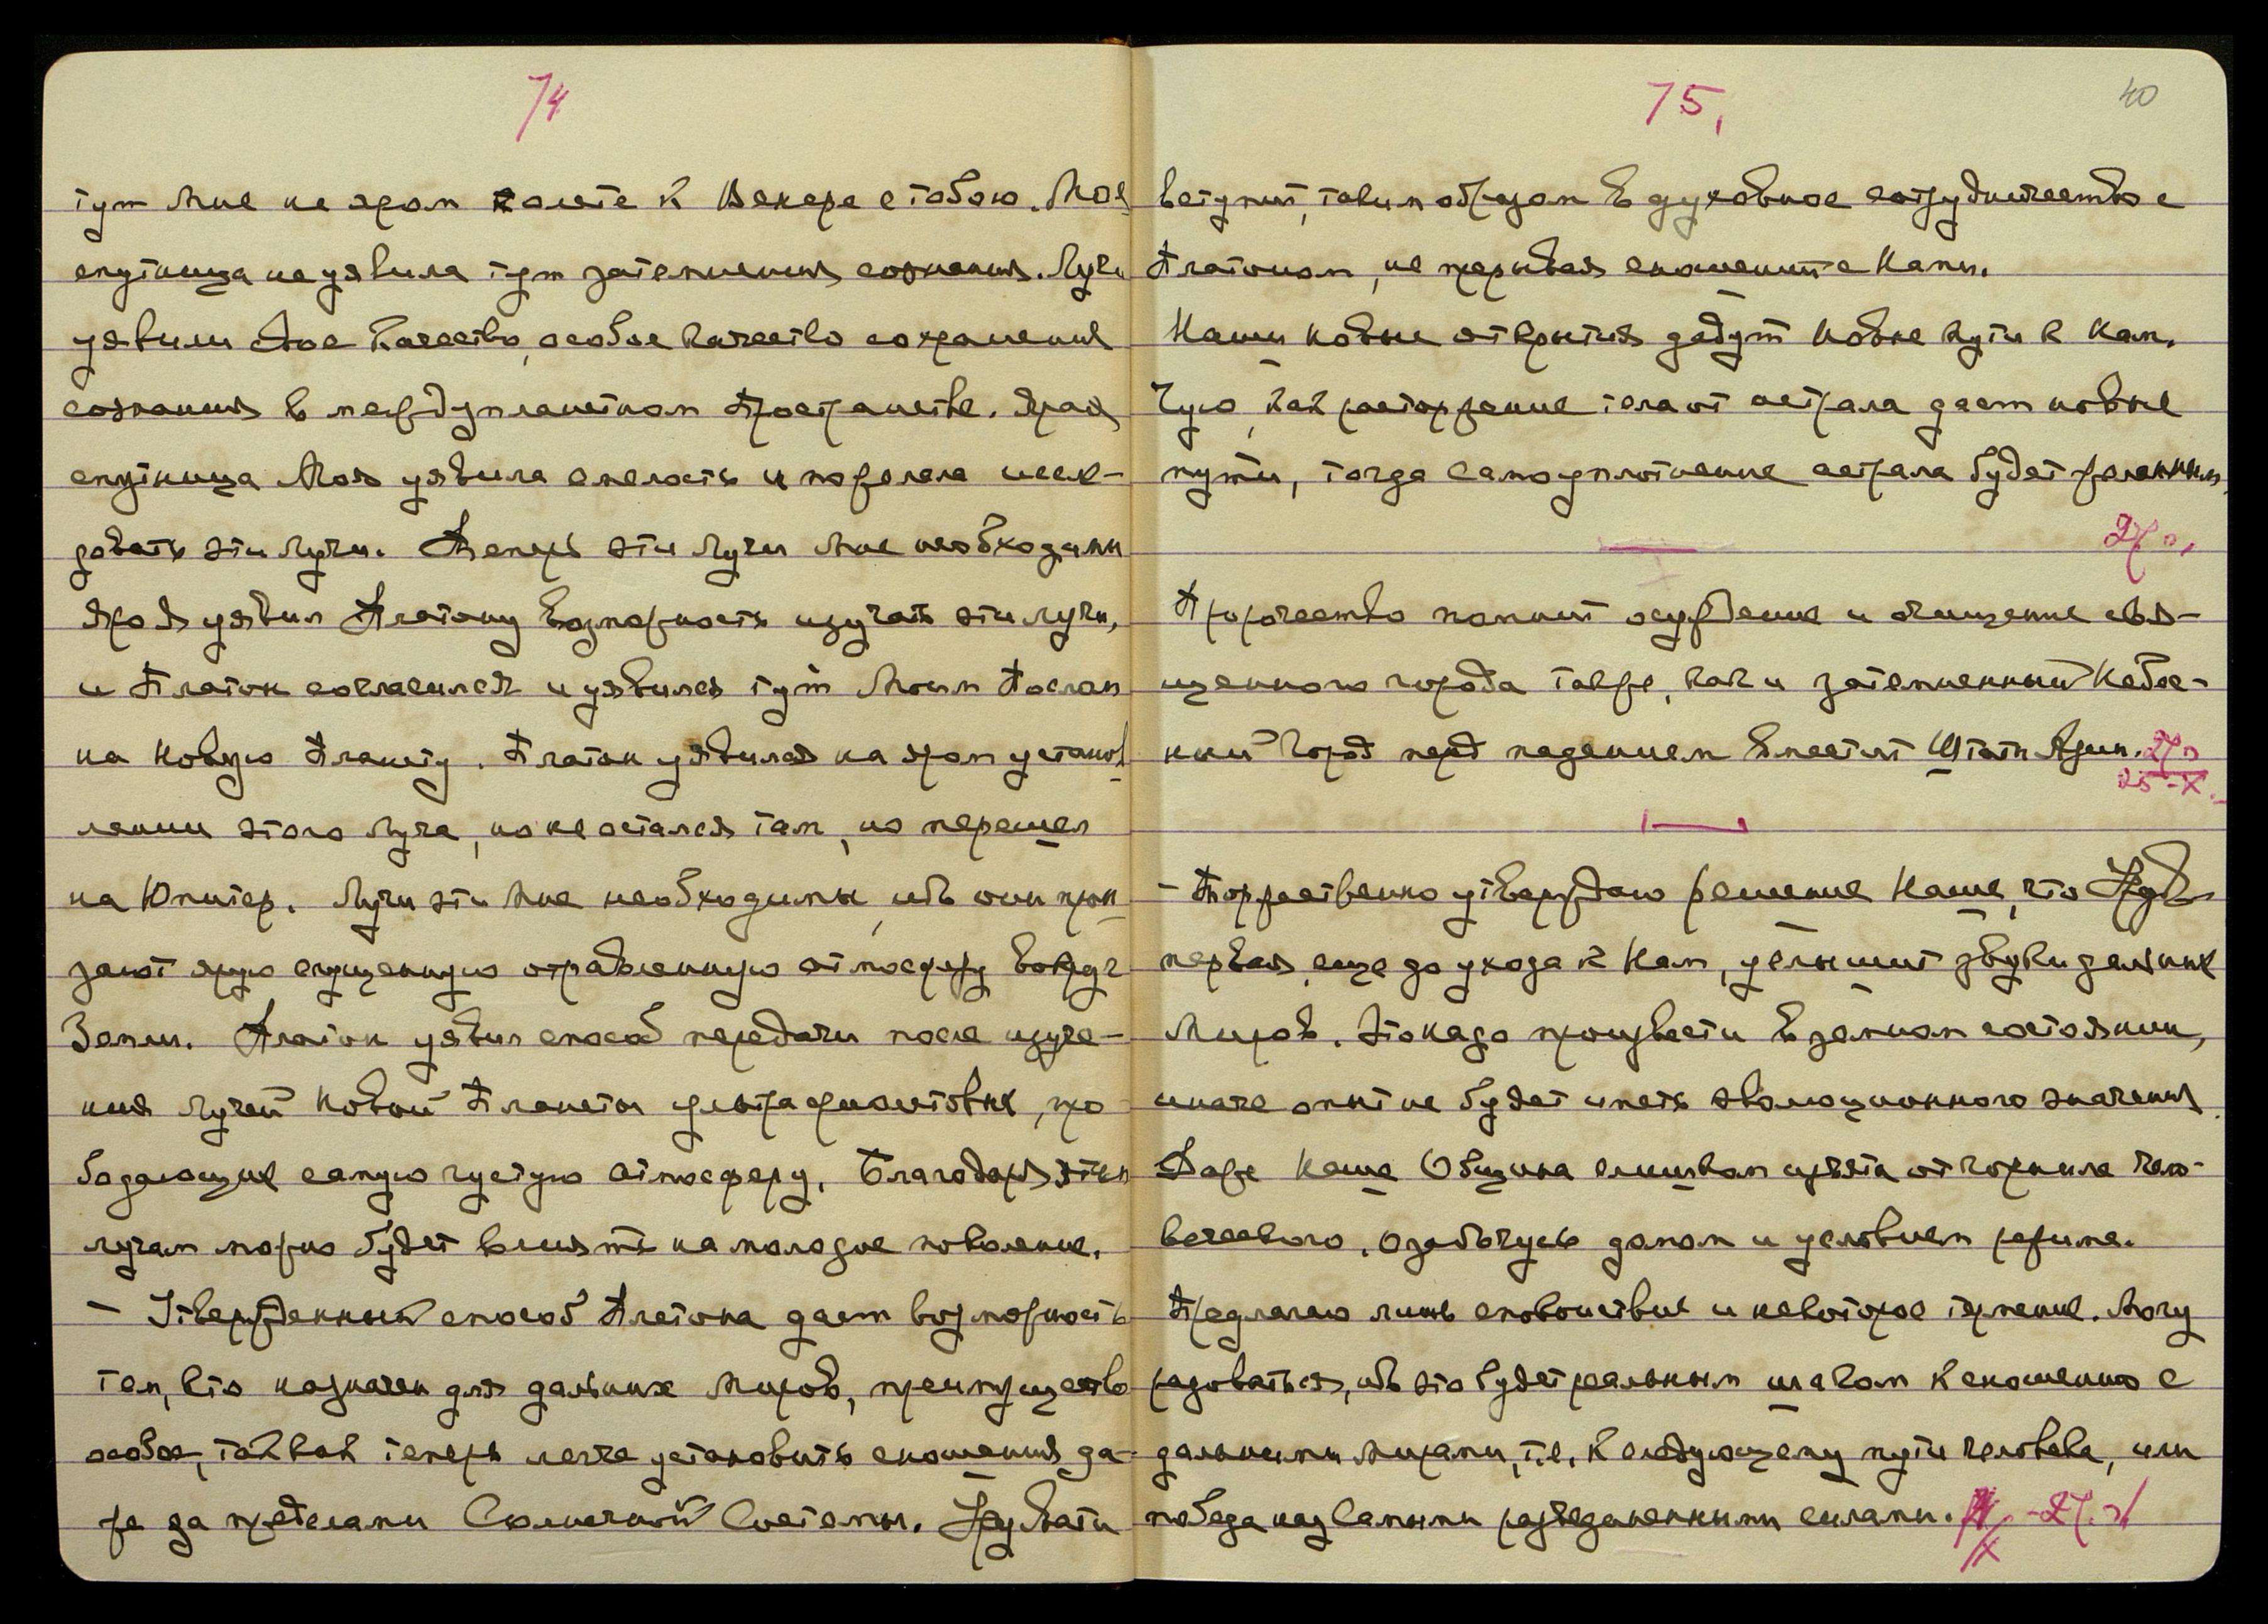 74
тут Мне на яром полете к Венере с тобою. Моя
спутница не уявила тут затемнения сознания. Лучи
уявили свое качество, особое качество сохранения
сознания в междупланетном пространстве. Ярая
спутница Моя уявила смелость и пожелала иссле-
довать эти Лучи. Теперь эти Лучи Мне необходимы
Яро Я уявил Платону возможность изучать эти лучи,
и Платон согласился и уявился тут Моим Послан
на Новую Планету. Платон уявился на яром установ
лении этого Луча, но не остался там, но перешел
на Юпитер. Лучи эти Мне необходимы, ибо они прон
зают ярую сгущенную отравленную атмосферу вокруг
Земли. Платон уявил способ передачи после изуче-
ния лучей Новой Планеты ультрафиолетовых, про
бодающих самую густую атмосферу. Благодаря этим
лучам можно будет влиять на молодое поколение.
— Утвержденный способ Платона дает возможность
тем, кто назначен для дальних Миров, преимущество
особое, так как теперь легче установить сношения да-
же за пределами Солнечной Системы. Урувати
75, 40
вступит, таким образом в духовное сотрудничество с
Платоном, не прерывая сношений с Нами.
Наши новые открытия дадут новые пути к Нам.
Чую, как расторжение тела от астрала дает новые
пути, тогда самоуплотнение астрала будет явленным.
Пророчество помнит осуждение и очищение свя-
щенного города также, как и затемненный Небес-
ный Город перед падением вместит Штаты Азии.
25-X.
— Торжественно утверждаю решение Наше, что Ур.
первая, еще до ухода к Нам, услышит звуки дальних
Миров. Это надо произвести в земном состоянии,
иначе опыт не будет иметь эволюционного значения.
Даже Наша Община слишком изъята от горнила чело-
веческого. Озабочусь домом и условием режима.
Предлагаю лишь спокойствие и некоторое терпение. Могу
радоваться, ибо это будет реальным шагом к сношению с
дальними Мирами, т.е. к следующему пути человека, или
победа над самыми разъединенными силами.